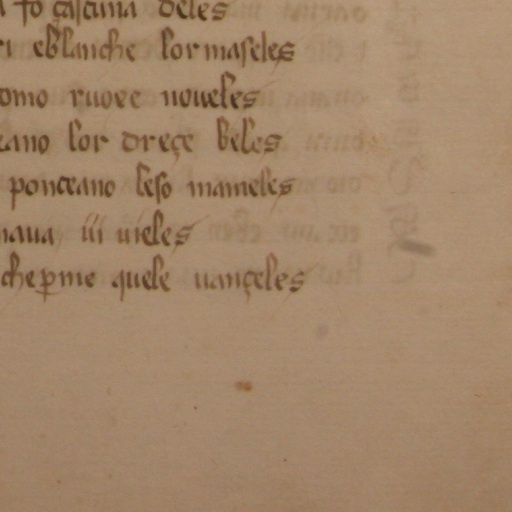 fo çascuna deles
eblanche lor maseles
omo ruoxe noveles
ano lor dreçe beles
ponceano leso mameles
naua iii uieles
che ꝑ me quele uançeles